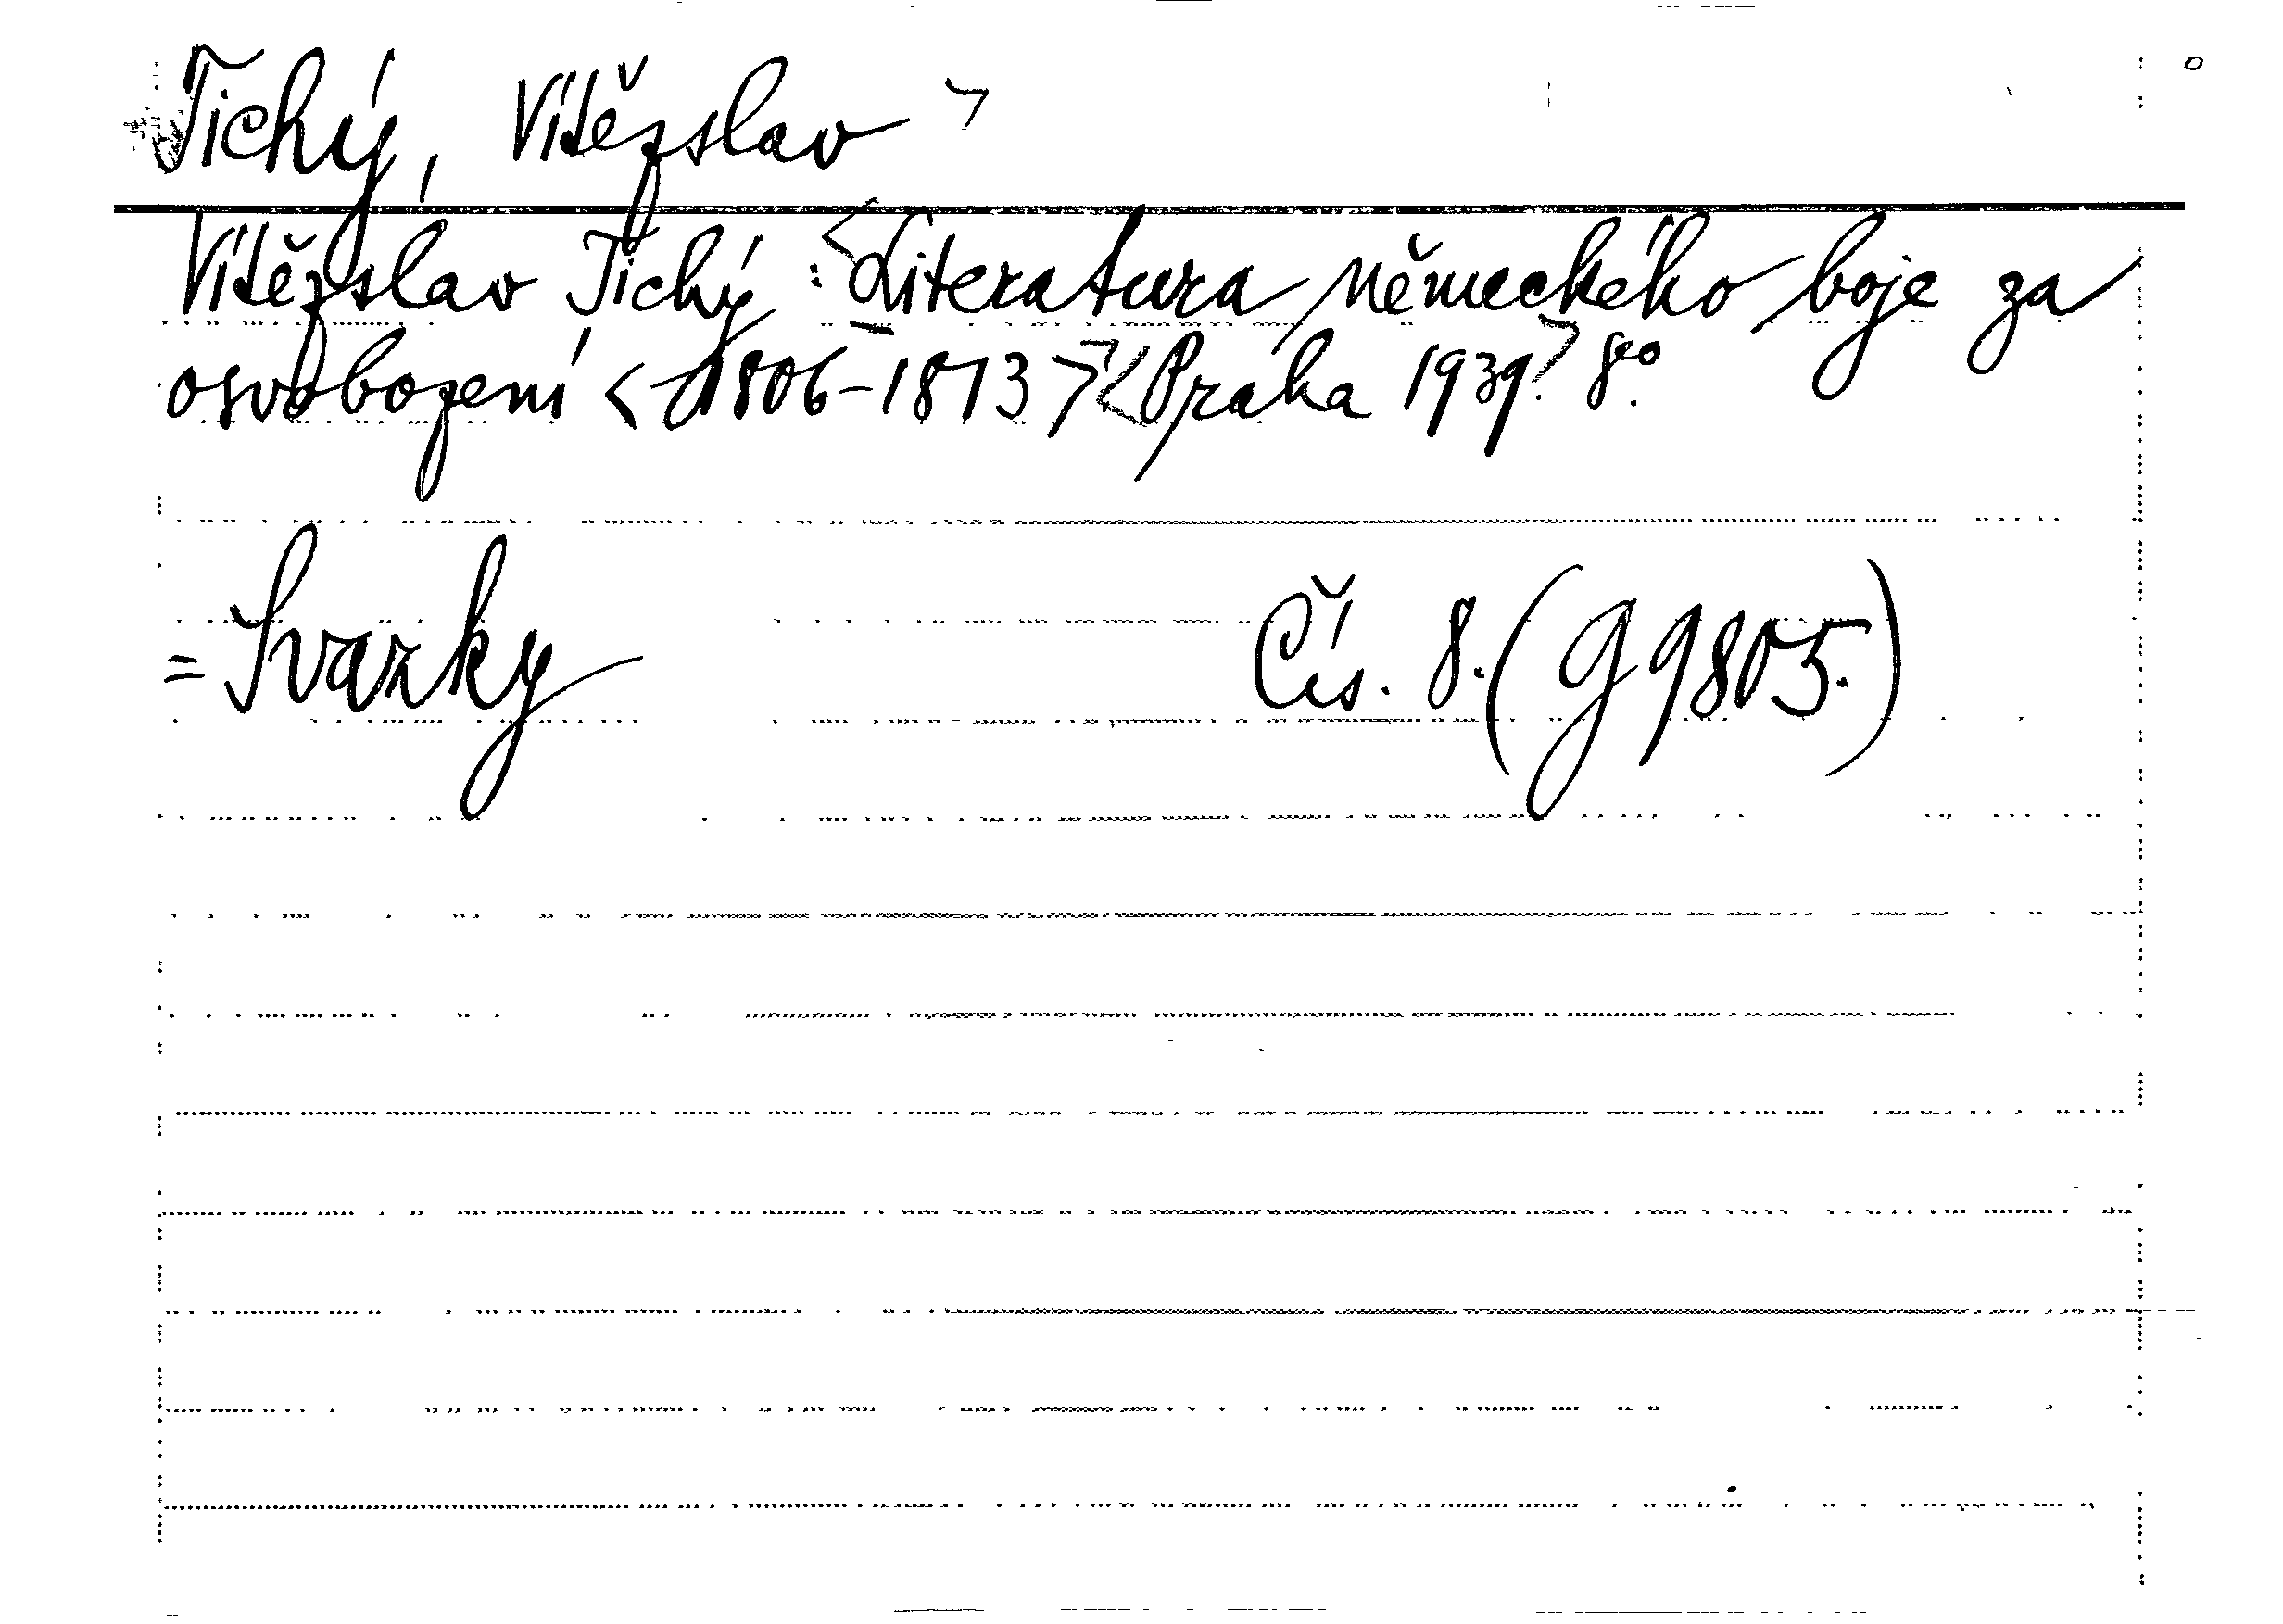 Tichý, Vítězslav >
Vítězslav Tichý : <Literatura německého boje za
osvobození <1806-1813>> <Praha 1939.> 8°.
= Svazky Čís. 8. (G 9805.)